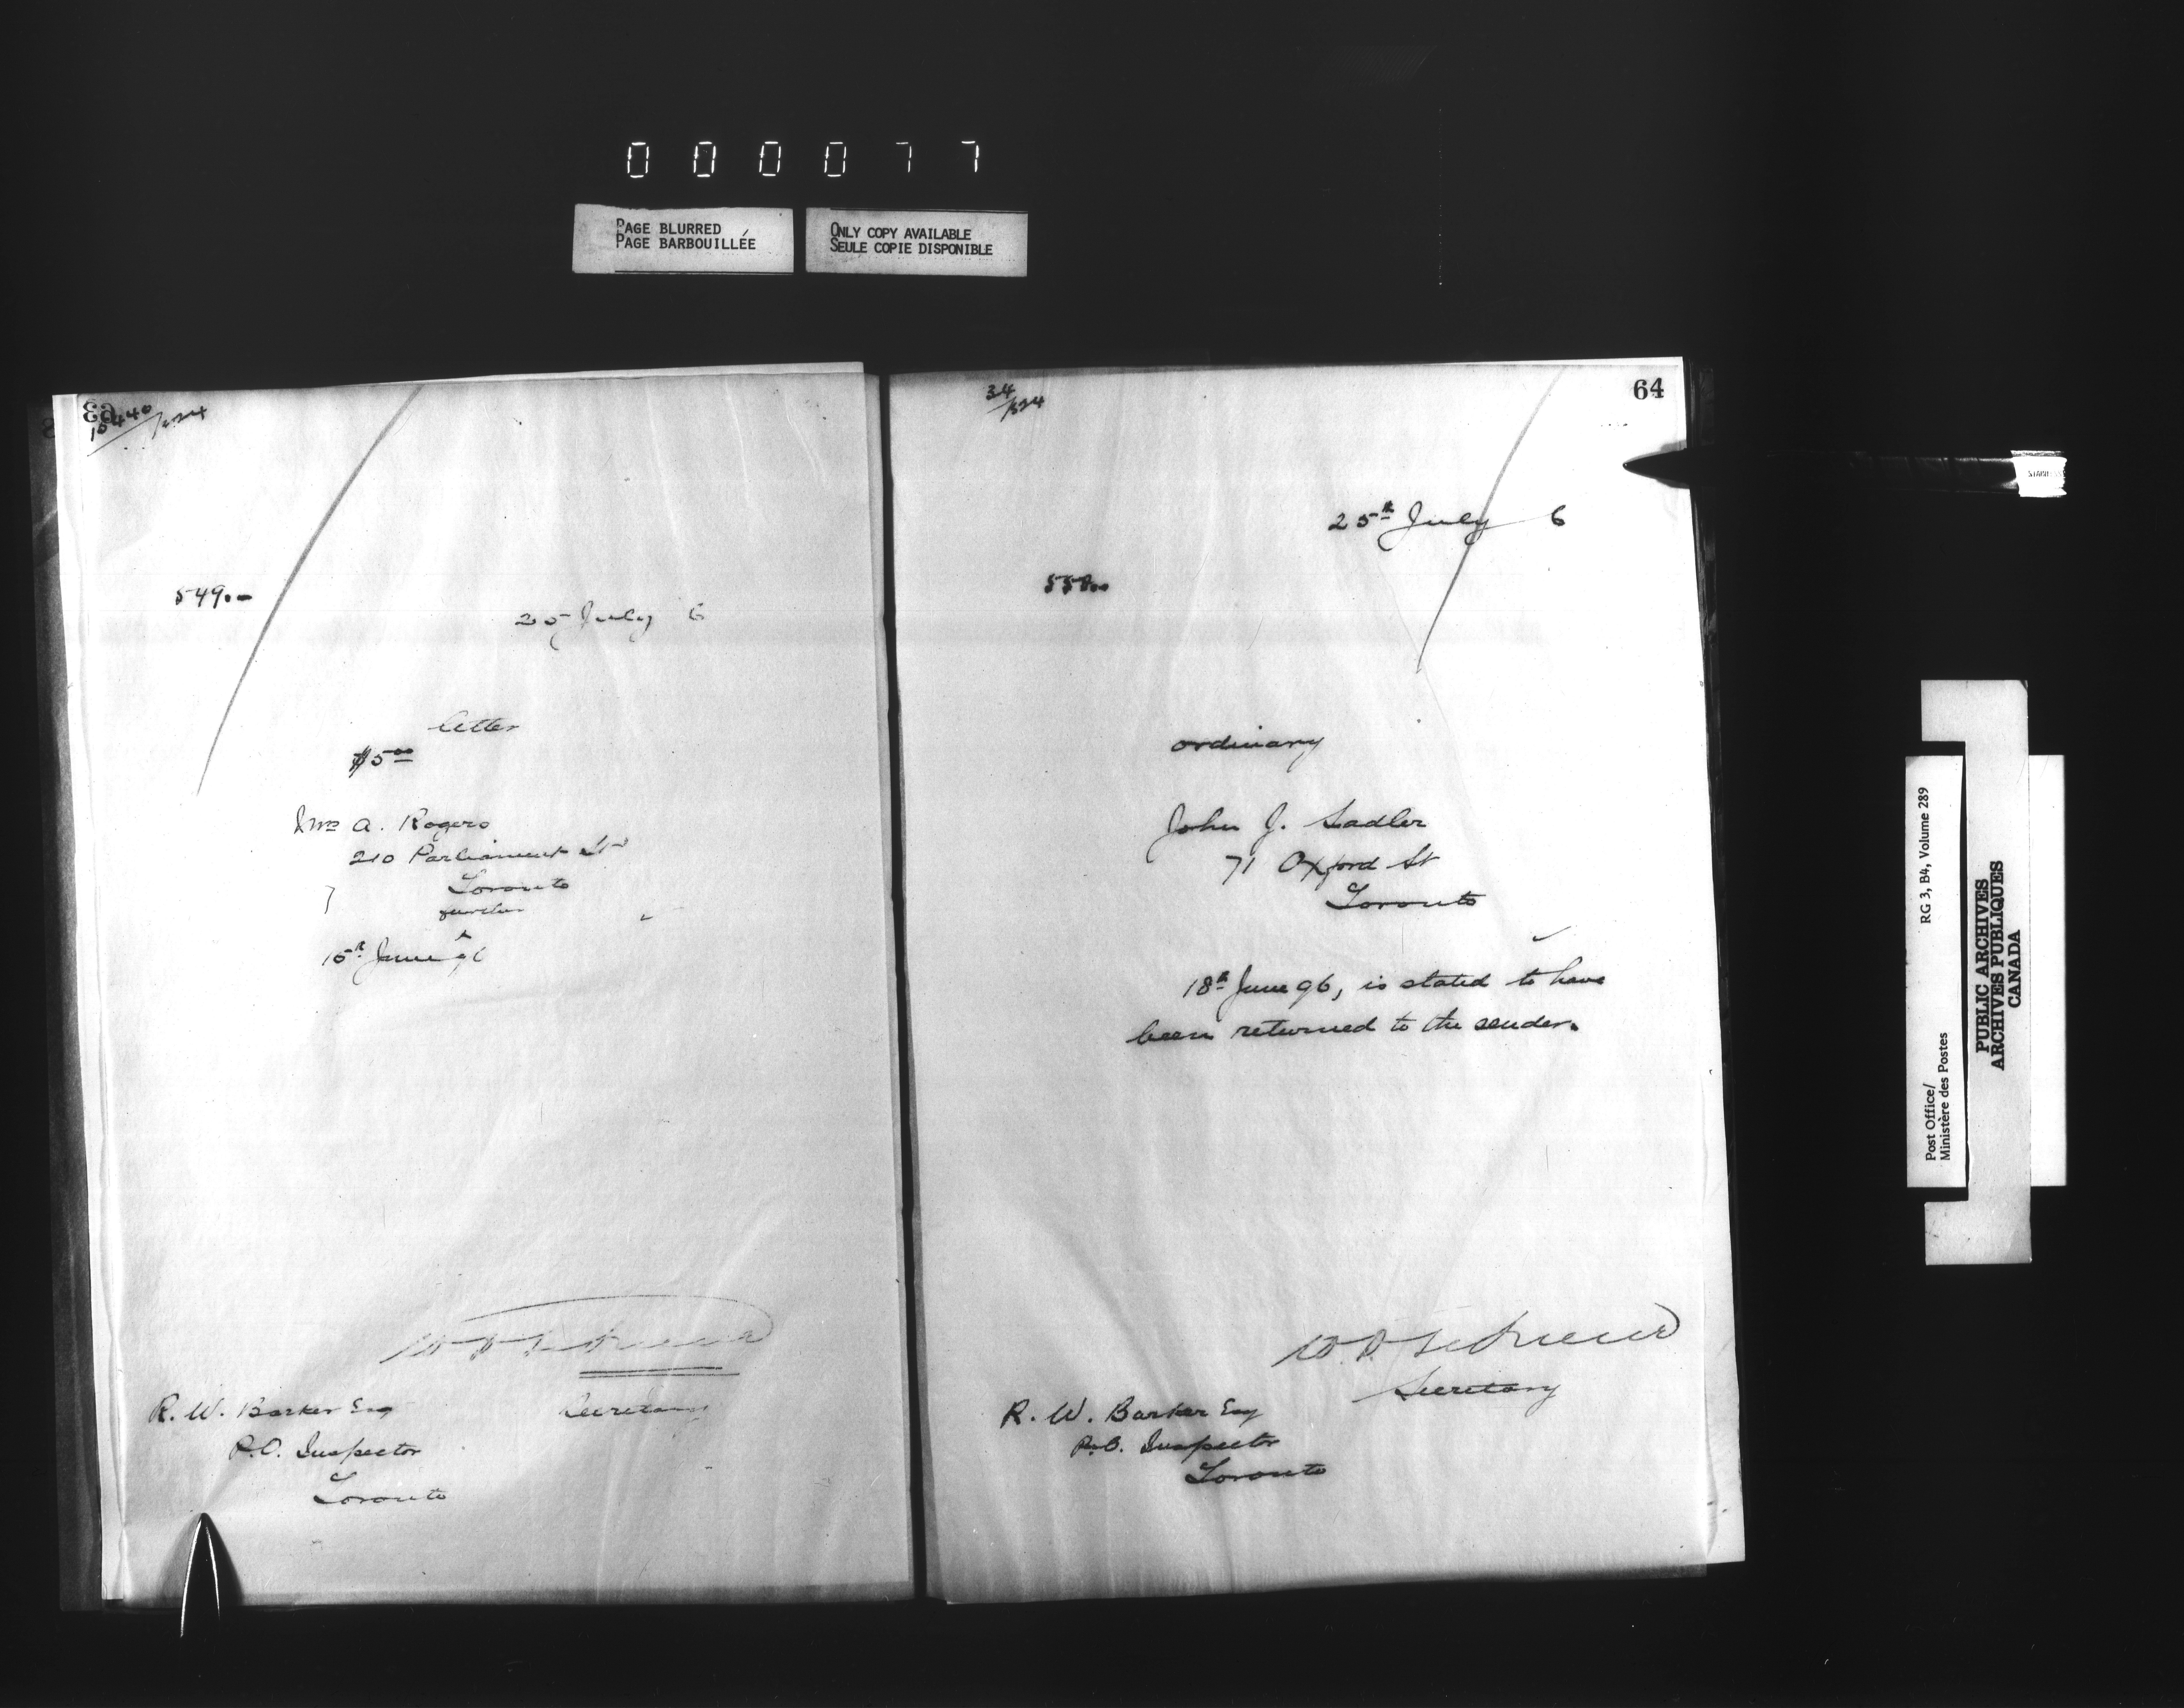 000077
PAGE BLURRED
PAGE BARBOUILLÉE
ONLY COPY AVAILABLE
SEULE COPIE DISPONIBLE
63
549.-
25 July 6
letter
$5.00
Mrs A. Rogers
210 Parliament St
Toronto
further
15th June 96
Secretary
R. W. Barker Esq
P.O. Inspector
Toronto
34/534
64
25th July 6
558..
ordinary
John J. Sadler
71 Oxford St
Toronto
18th June 96, is stated to have
been returned to the sender.
Secretary
R. W. Barker Esq
P.O. Inspector
Toronto
Post Office/
Ministère des Postes
RG 3, B4, Volume 289
PUBLIC ARCHIVES
ARCHIVES PUBLIQUES
CANADA